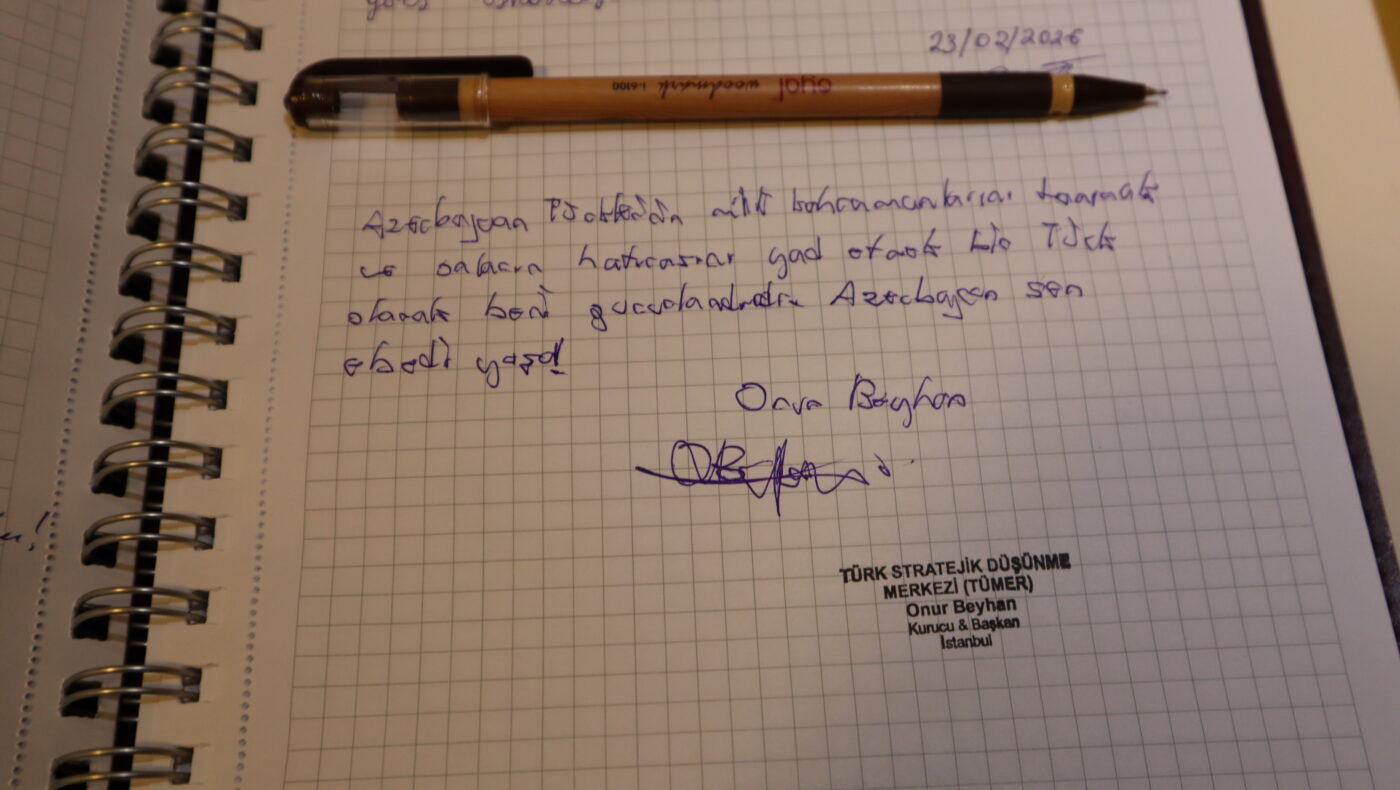 23/02/2026
oyal woodmark 1-6100
Azerbaycan Türklerinin milli kahramanlarını tanımak
ve onların hatırasını yad etmek bir Türk
olarak beni gururlandırdı. Azerbaycan sen
ebedi yaşa!
Onur Beyhan
TÜRK STRATEJİK DÜŞÜNME
MERKEZİ (TÜMER)
Onur Beyhan
Kurucu & Başkan
İstanbul